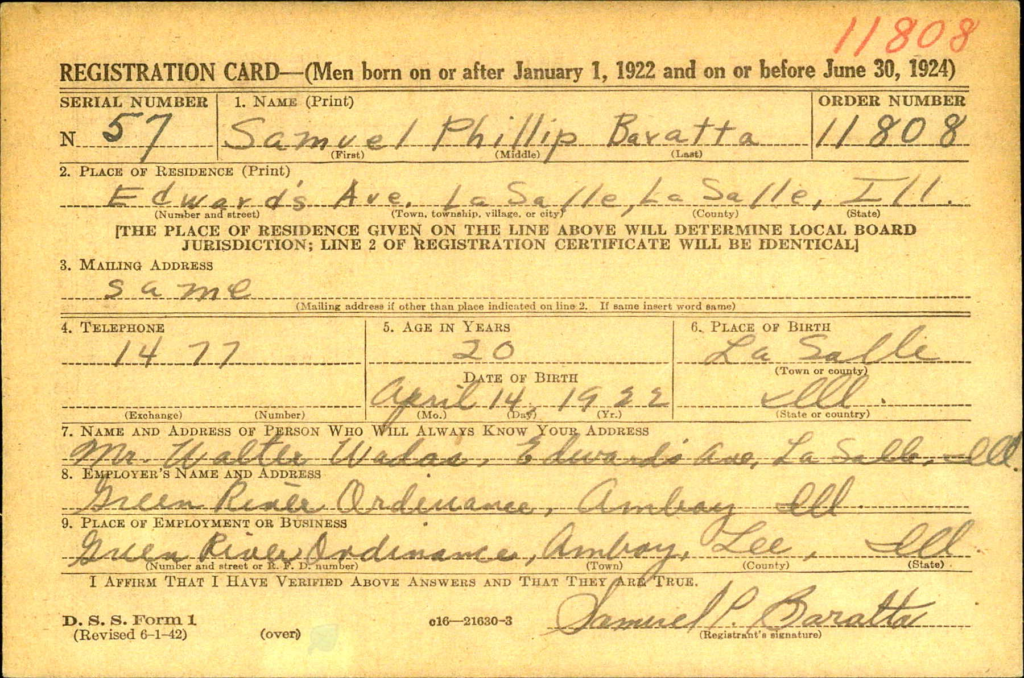 11808
REGISTRATION CARD—(Men born on or after January 1, 1922 and on or before June 30, 1924)
SERIAL NUMBER 1. NAME (Print) ORDER NUMBER
N 57 Samuel Phillip Baratta 11808
(First) (Middle) (Last)
2. PLACE OF RESIDENCE (Print)
Edward's Ave. LaSalle, LaSalle, Ill.
(Number and street) (Town, township, village, or city) (County) (State)
[THE PLACE OF RESIDENCE GIVEN ON THE LINE ABOVE WILL DETERMINE LOCAL BOARD
JURISDICTION; LINE 2 OF REGISTRATION CERTIFICATE WILL BE IDENTICAL]
3. MAILING ADDRESS
same
(Mailing address if other than place indicated on line 2. If same insert word same)
4. TELEPHONE 5. AGE IN YEARS 6. PLACE OF BIRTH
1477 20 La Salle
(Town or county)
DATE OF BIRTH
April 14, 1922 Ill.
(Exchange) (Number) (Mo.) (Day) (Yr.) (State or country)
7. NAME AND ADDRESS OF PERSON WHO WILL ALWAYS KNOW YOUR ADDRESS
Mr. Walter Edwards Ave, La Salle, Ill
8. EMPLOYER'S NAME AND ADDRESS
Green River Ordinance, Amboy Ill.
9. PLACE OF EMPLOYMENT OR BUSINESS
Green River Ordinance, Amboy, Lee, Ill
(Number and street or R. F. D. number) (Town) (County) (State)
I AFFIRM THAT I HAVE VERIFIED ABOVE ANSWERS AND THAT THEY ARE TRUE.
D. S. S. Form 1
(Revised 6-1-42) (over) c16—21630-3 Samuel P. Baratta
(Registrant's signature)